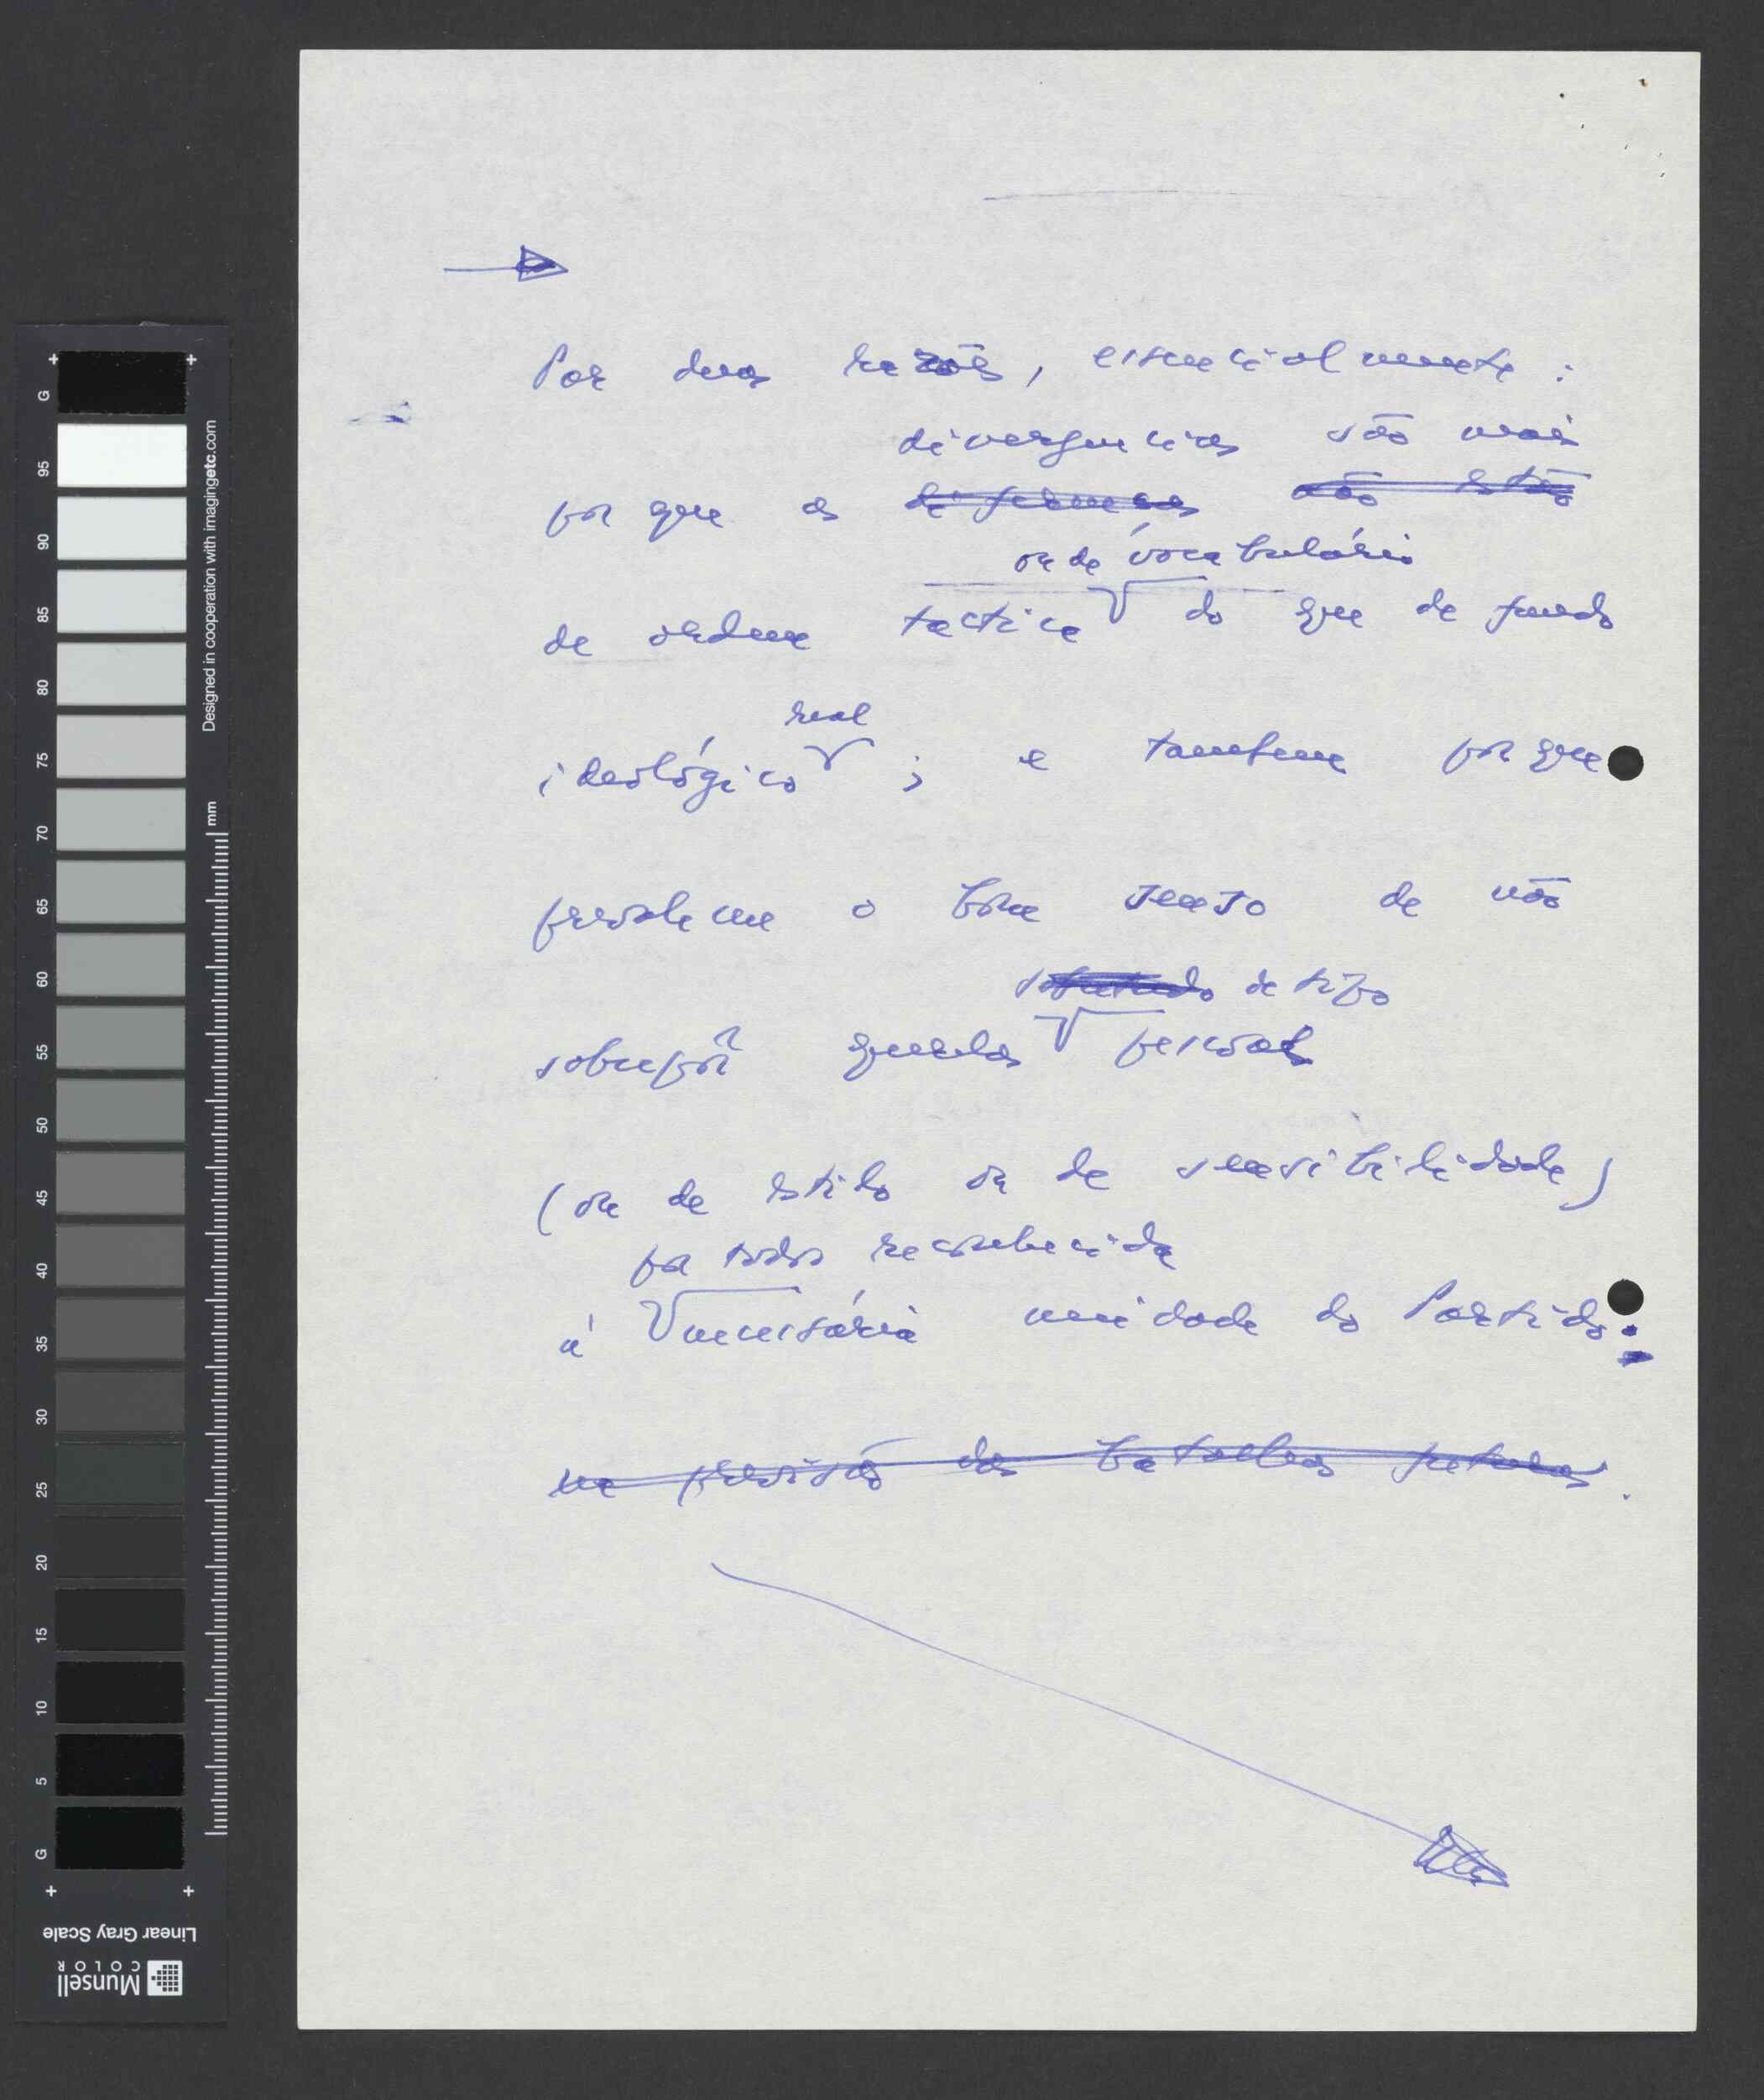 Por duas razões, essencialmente :
divergencias são mais
por que as diferenças não estão
ou de vocabulário
de ordem tactica do que de fundo
real
ideológico ; e tambem por que
prevalece o bom senso de não
sobretudo de tipo
sobrepôr querelas pessoais
(ou de estilo ou de sensibilidade)
por todos reconhecida
á necessária unidade do Partido.
na previsão das batalhas futuras.
G
95
90
85
80
75
70
65
60
55
50
45
40
35
30
25
20
15
10
5
G
Designed in cooperation with imagingetc.com
mm
Linear Gray Scale
Munsell
COLOR